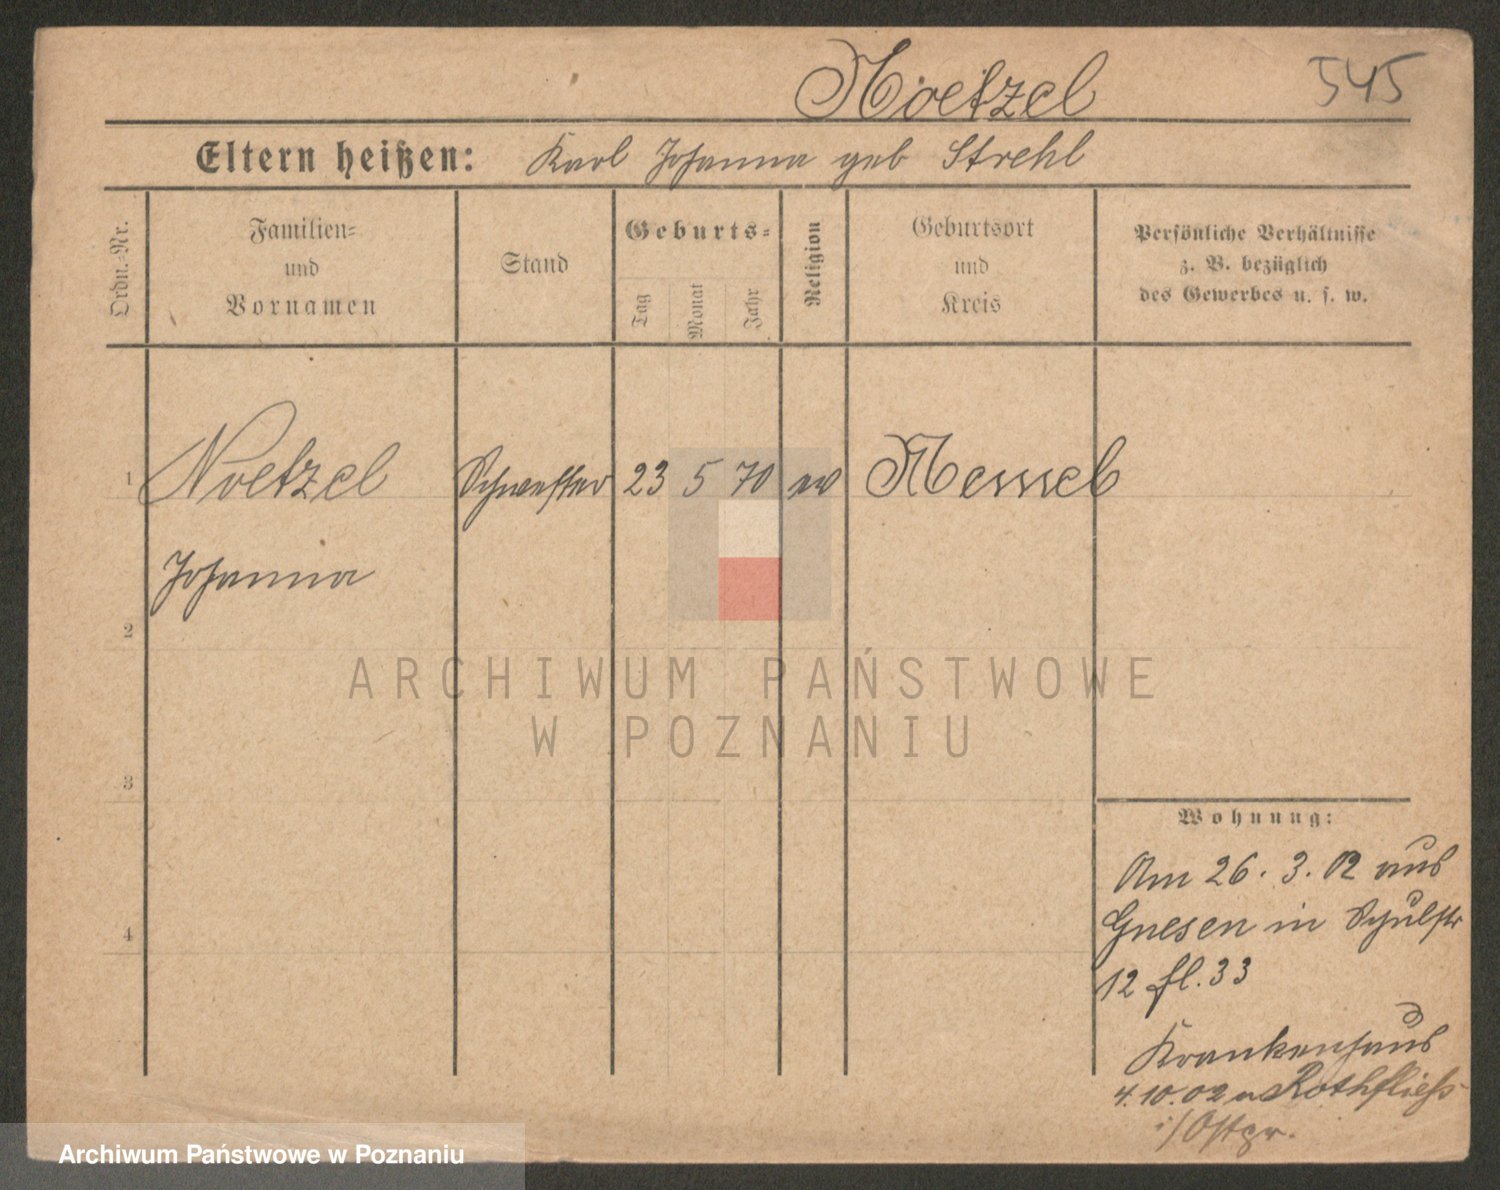 Noetzel 545
Eltern heißen: Karl Johanna geb Strehl
Ordn.-Nr.
Familien-
und
Vornamen
Stand
Geburts-
Tag
Monat
Jahr
Religion
Geburtsort
und
Kreis
Persönliche Verhältnisse
z. B. bezüglich
des Gewerbes u. s. w.
1 Noetzel Schwester 23 5 70 ev Memel
Johanna
2
ARCHIWUM PAŃSTWOWE
W POZNANIU
3
Wohnung:
Am 26. 3. 02 aus
4
Gnesen in Schulstr
12 fl. 33
Krankenhaus
4.10.02 n Rothfließ
i/Ostpr.
Archiwum Państwowe w Poznaniu